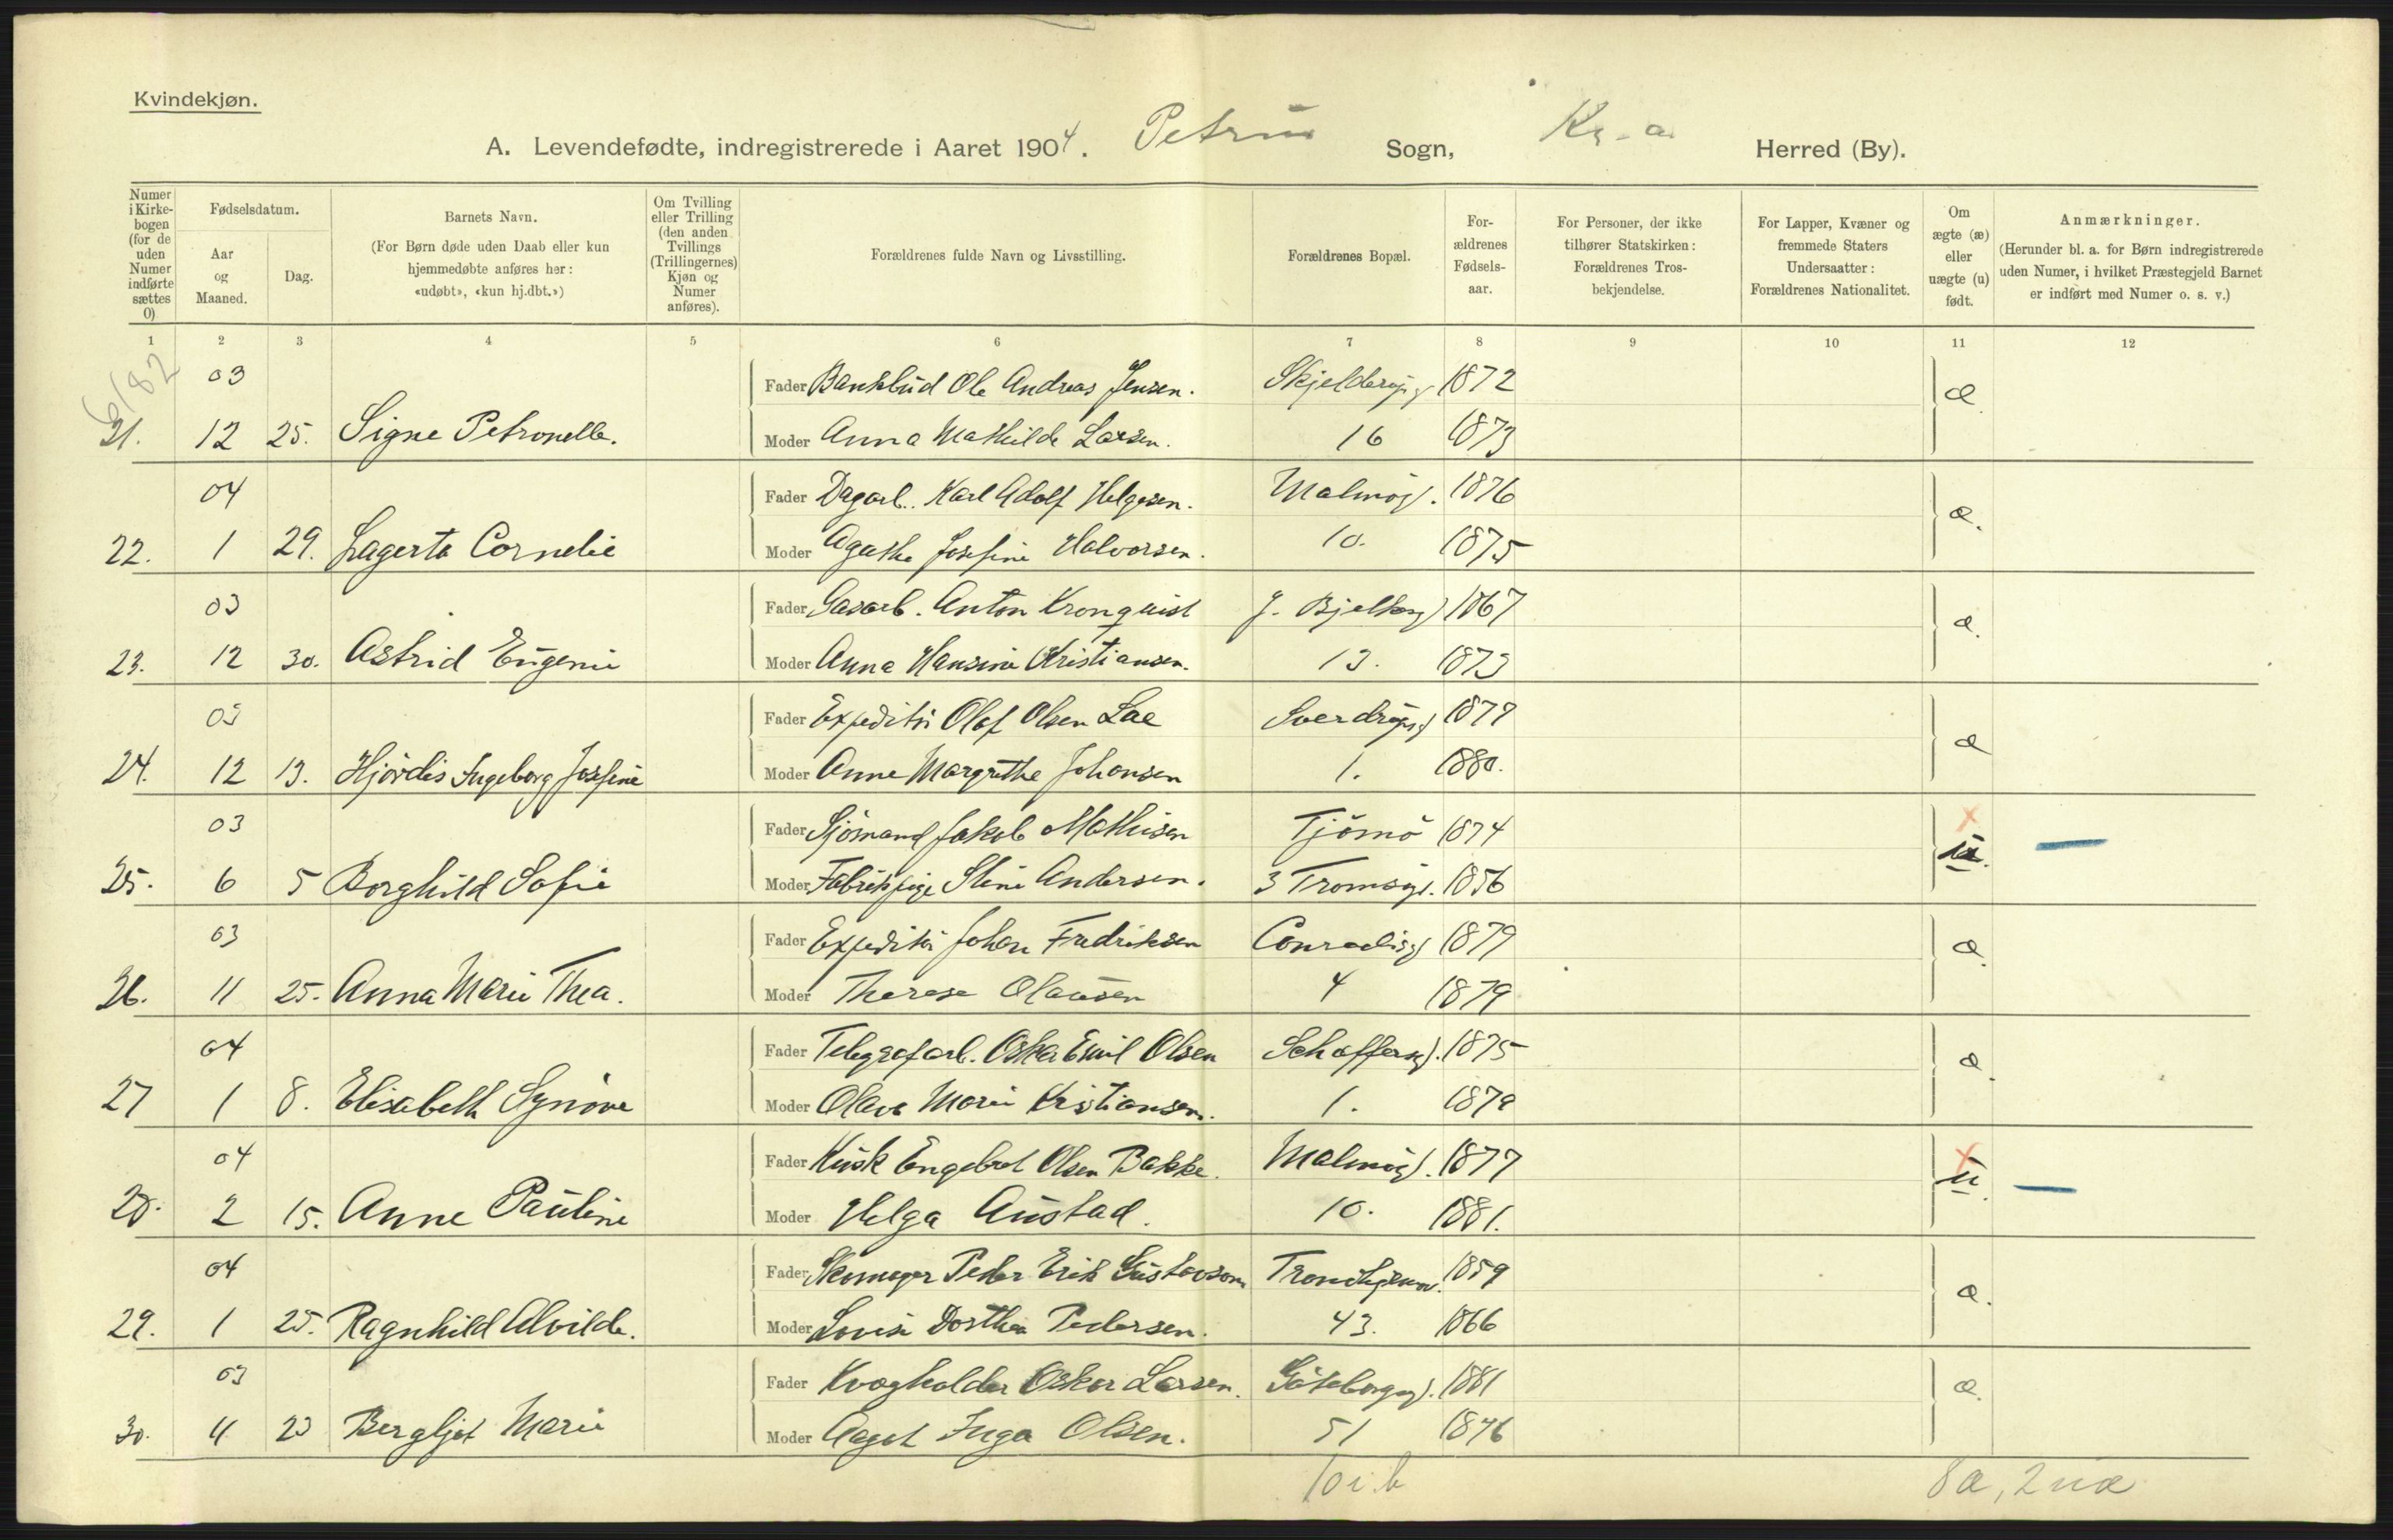 Kvindekjøn.
A. Levendefødte, indregistrerede i Aaret 1904. Petrus Sogn, Kr-a Herred (By).
Numer i Kirkebogen (for de uden Numer indførte sættes 0)
Fødselsdatum.
Aar og Maaned.
Dag.
Barnets Navn.
(For Børn døde uden Daab eller kun hjemmedøbte anføres her: «udøbt», «kun hj.dbt.»)
Om Tvilling eller Trilling (den anden Tvillings (Trillingernes) Kjøn og Numer anføres).
Forældrenes fulde Navn og Livsstilling.
Forældrenes Bopæl.
Forældrenes Fødselsaar.
For Personer, der ikke tilhører Statskirken: Forældrenes Trosbekjendelse.
For Lapper, Kvæner og fremmede Staters Undersaatter: Forældrenes Nationalitet.
Om ægte (æ) eller uægte (u) født.
Anmærkninger.
(Herunder bl. a. for Børn indregistrerede uden Numer, i hvilket Præstegjeld Barnet er indført med Numer o. s. v.)
1 2 3 4 5 6 7 8 9 10 11 12
6182
03 Fader Bankbud Ole Andreas Jensen. Skjelderupsg 1872 æ
21. 12 25. Signe Petronella. Moder Anna Mathilde Larsen. 16 1873
04 Fader Dagarb. Karl Adolf Helgesen. Malmøg. 1876 æ.
22. 1 29. Lagerta Cornelie Moder Agathe Josefine Halvorsen. 10. 1875
03 Fader Gasarb. Anton Kronquist J. Bjelkesg 1867 æ.
23. 12 30. Astrid Eugenie Moder Anna Hansine Kristiansen. 13. 1873
03 Fader Expeditør Olaf Olsen Lae Sverdrupsg 1877 æ
24. 12 13. Hjørdis Ingeborg Josefine Moder Anne Margrethe Johansen 1. 1880.
03 Fader Sjømand Jakob Mathisen Tjømø 1874 x
25. 6 5 Borghild Sofie Moder Fabrikpige Stine Andersen. 3 Tromsøg. 1856 u.
03 Fader Expeditør Johan Fredriksen Conradisg 1879 æ
26. 11 25. Anna Marie Thea. Moder Therese Olausen 4 1879
04 Fader Telegrafarb. Oskar Emil Olsen Schaffersg. 1875 æ.
27 1 8. Elisabeth Synnøve Moder Olava Marie Kristiansen. 1. 1879
04 Fader Kusk Engebret Olsen Bakke. Malmøg. 1877 x u.
28. 2 15. Anne Pauline Moder Helga Austad. 10. 1881.
04 Fader Skomager Peder Erik Gustavson Trondhjemsv. 1859 æ.
29. 1 25. Ragnhild Alvilde. Moder Lovise Dorthea Pedersen. 43. 1866
03 Fader Kvægholder Oskar Larsen. Göteborgsg. 1881 æ.
30. 11 23 Bergljot Marie Moder Aagot Inga Olsen. 51 1876
10 i b 8 æ, 2 uæ